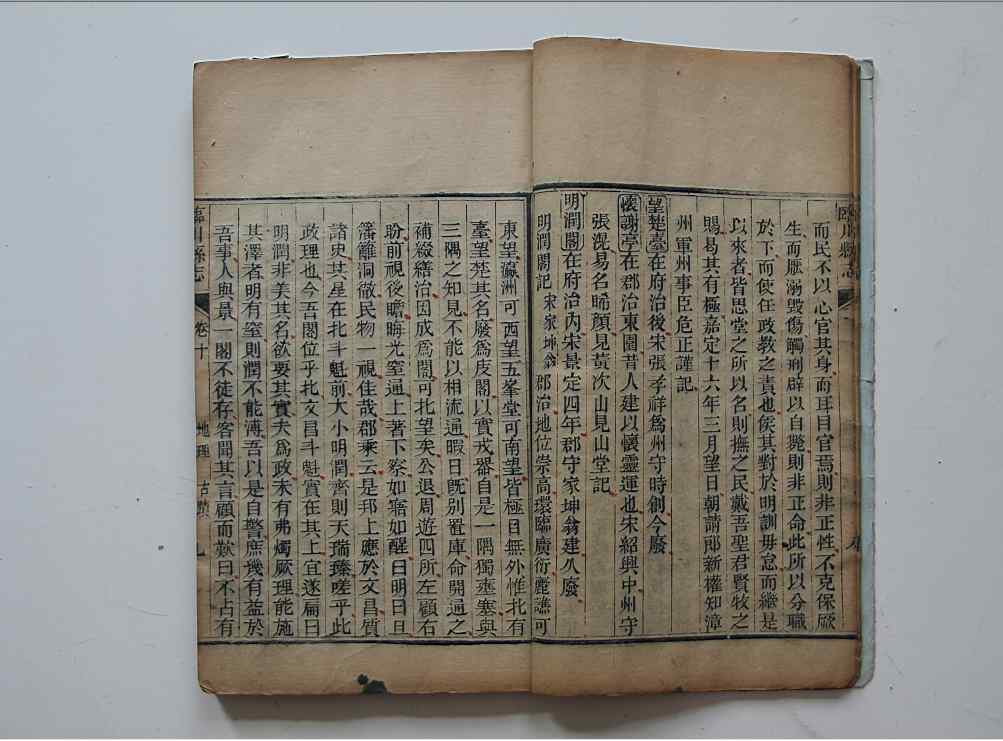 臨川縣志
而民不以心官其身而耳目官焉則非正性不克保厥
生而厭溺毀傷觸刑辟以自斃則非正命此所以分職
於下而使任政教之責也俟其對於明訓毋怠而繼是
以來者皆思堂之所以名則撫之民戴吾聖君賢牧之
賜易其有極嘉定十六年三月望日朝請郎新權知漳
州軍州事臣危正謹記
望楚臺在府治後宋張孝祥爲州守時創今廢
懷謝亭在郡治東園昔人建以懷靈運也宋紹興中州守
張滉易名晞顏見黃次山見山堂記
明潤閣在府治內宋景定四年郡守家坤翁建久廢
明潤閣記 宋家坤翁 郡治地位崇高環臨廣衍麗譙可
東望瀛洲可西望五峯堂可南望皆極目無外惟北有
臺望楚其名廢爲皮閣以實戎器自是一隅獨壅塞與
三隅之知見不能以相流通暇日旣別置庫命開通之
補綴繕治因成爲閣可北望矣公退周遊四所左顧右
盼前視後瞻晦光窒通上著下察如寤如醒曰明日旦
籓籬洞徹民物一視佳哉郡乘云是邦上應於文昌質
諸史其星在北斗魁前大小明潤齊則天瑞臻嗟乎此
政理也今吾閣位乎北文昌斗魁實在其上宜遂扁曰
明潤非美其名欲要其實夫爲政未有弗燭厥理能施
其澤者明有窒則潤不能溥吾以是自警庶幾有益於
吾事人與景一閣不徒存客聞其言顧而歎曰不占有
臨川縣志 卷十 地理 古蹟 七